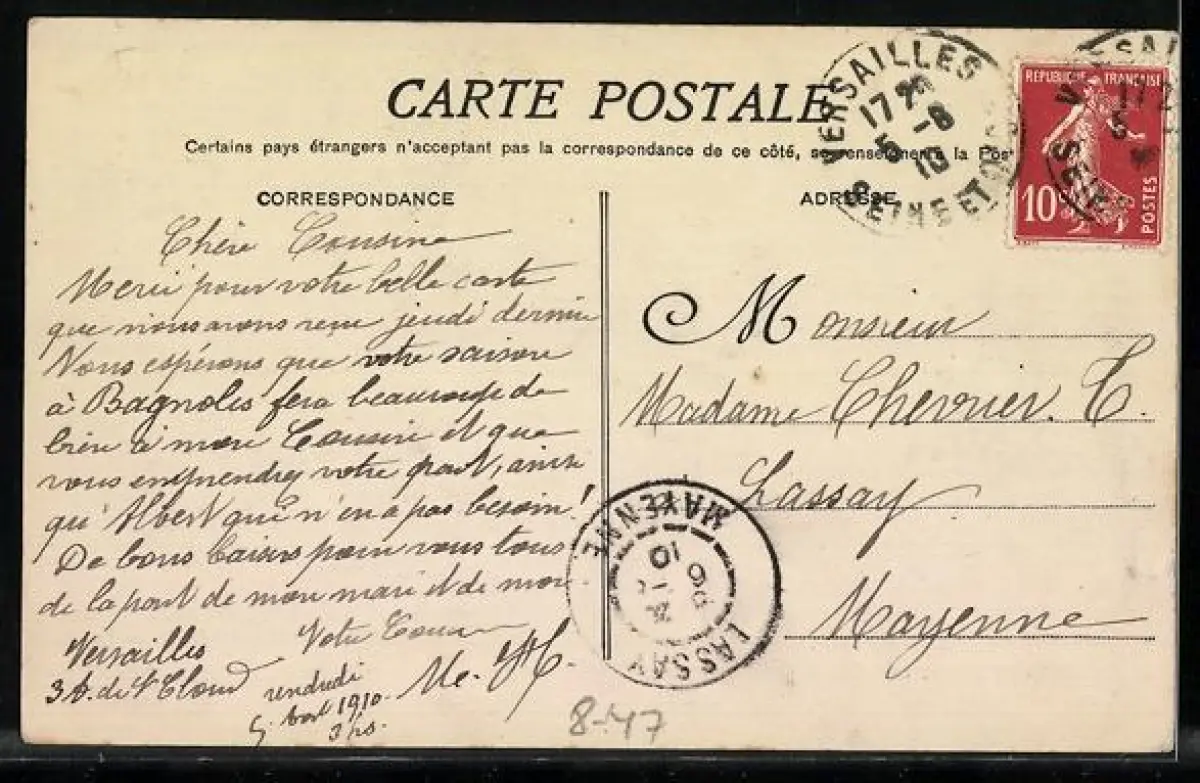 CARTE POSTALE
Certains pays étrangers n'acceptant pas la correspondance de ce côté, se renseigner à la Pos
CORRESPONDANCE
Chère Cousine
Merci pour votre belle carte
que nous avons reçue jeudi dernier
Nous espérons que votre saison
à Bagnoles fera beaucoup de
bien à mon Cousin et que
vous en prendrez votre part, ainsi
qu'Albert qui n'en a pas besoin!
De bons baisers pour vous tous
de la part de mon mari et de moi
Votre Cousine
Versailles
3 de St Cloud
vendredi
5 août 1910
Me.
ADRESSE
Monsieur
Madame Chevrier. T.
Lassay
Mayenne
VERSAILLES
17
5 -8
10
SEINE ET OISE
REPUBLIQUE FRANÇAISE
10
POSTES
MAYENNE
10
LASSAY
8-47